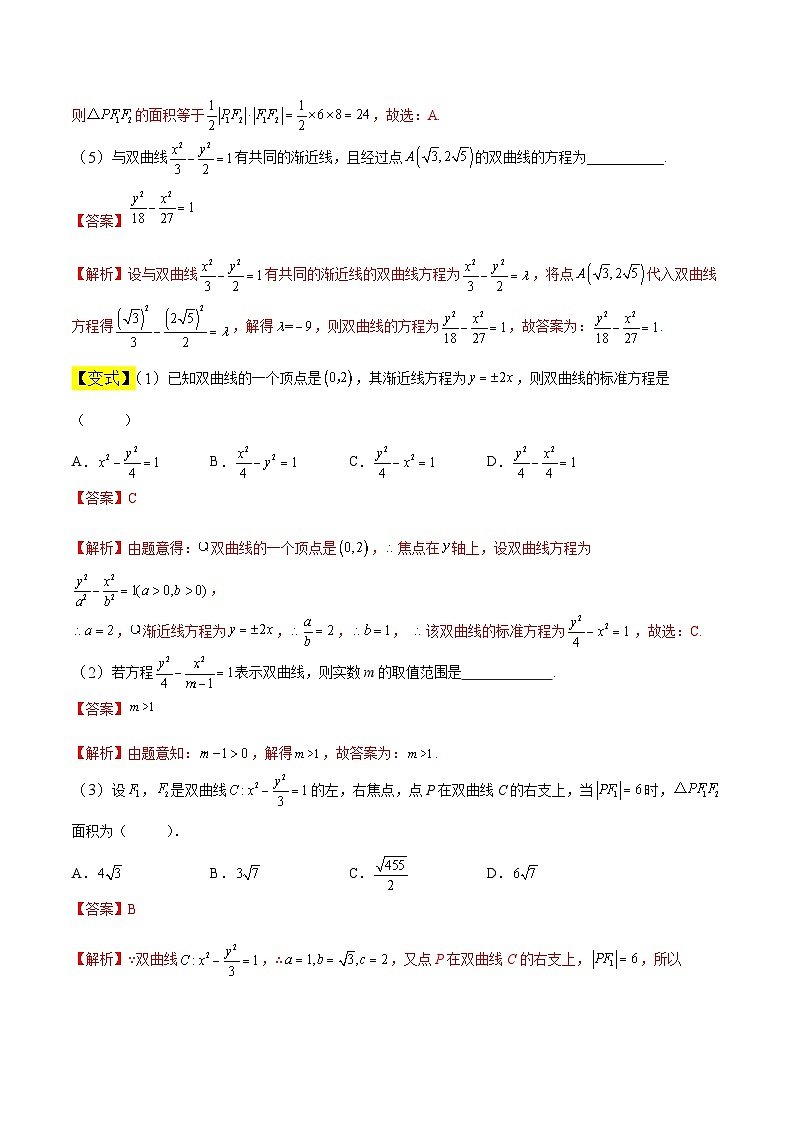 则△PF₁F₂的面积等于\frac{1}{2}|PF₂|·|F₁F₂|=\frac{1}{2}×6×8=24，故选：A.
（5）与双曲线\frac{x²}{3}-\frac{y²}{2}=1有共同的渐近线，且经过点A(√3,2√5)的双曲线的方程为___________.
【答案】\frac{y²}{18}-\frac{x²}{27}=1
【解析】设与双曲线\frac{x²}{3}-\frac{y²}{2}=1有共同的渐近线的双曲线方程为\frac{x²}{3}-\frac{y²}{2}=λ，将点A(√3,2√5)代入双曲线
方程得\frac{(√3)²}{3}-\frac{(2√5)²}{2}=λ，解得λ=-9，则双曲线的方程为\frac{y²}{18}-\frac{x²}{27}=1，故答案为：\frac{y²}{18}-\frac{x²}{27}=1.
【变式】（1）已知双曲线的一个顶点是(0,2)，其渐近线方程为y=±2x，则双曲线的标准方程是
（　　）
A．x²-\frac{y²}{4}=1 B．\frac{x²}{4}-y²=1 C．\frac{y²}{4}-x²=1 D．\frac{y²}{4}-\frac{x²}{4}=1
【答案】C
【解析】由题意得：Q双曲线的一个顶点是(0,2)，∴焦点在y轴上，设双曲线方程为
\frac{y²}{a²}-\frac{x²}{b²}=1(a>0,b>0)，
∴a=2，Q渐近线方程为y=±2x，∴\frac{a}{b}=2，∴b=1，∴该双曲线的标准方程为\frac{y²}{4}-x²=1，故选：C.
（2）若方程\frac{y²}{4}-\frac{x²}{m-1}=1表示双曲线，则实数m的取值范围是_____________.
【答案】m>1
【解析】由题意知：m-1>0，解得m>1，故答案为：m>1.
（3）设F₁，F₂是双曲线C:x²-\frac{y²}{3}=1的左，右焦点，点P在双曲线C的右支上，当|PF₁|=6时，△PF₁F₂
面积为（　　）.
A．4√3 B．3√7 C．\frac{√455}{2} D．6√7
【答案】B
【解析】∵双曲线C:x²-\frac{y²}{3}=1，∴a=1,b=√3,c=2，又点P在双曲线C的右支上，|PF₁|=6，所以